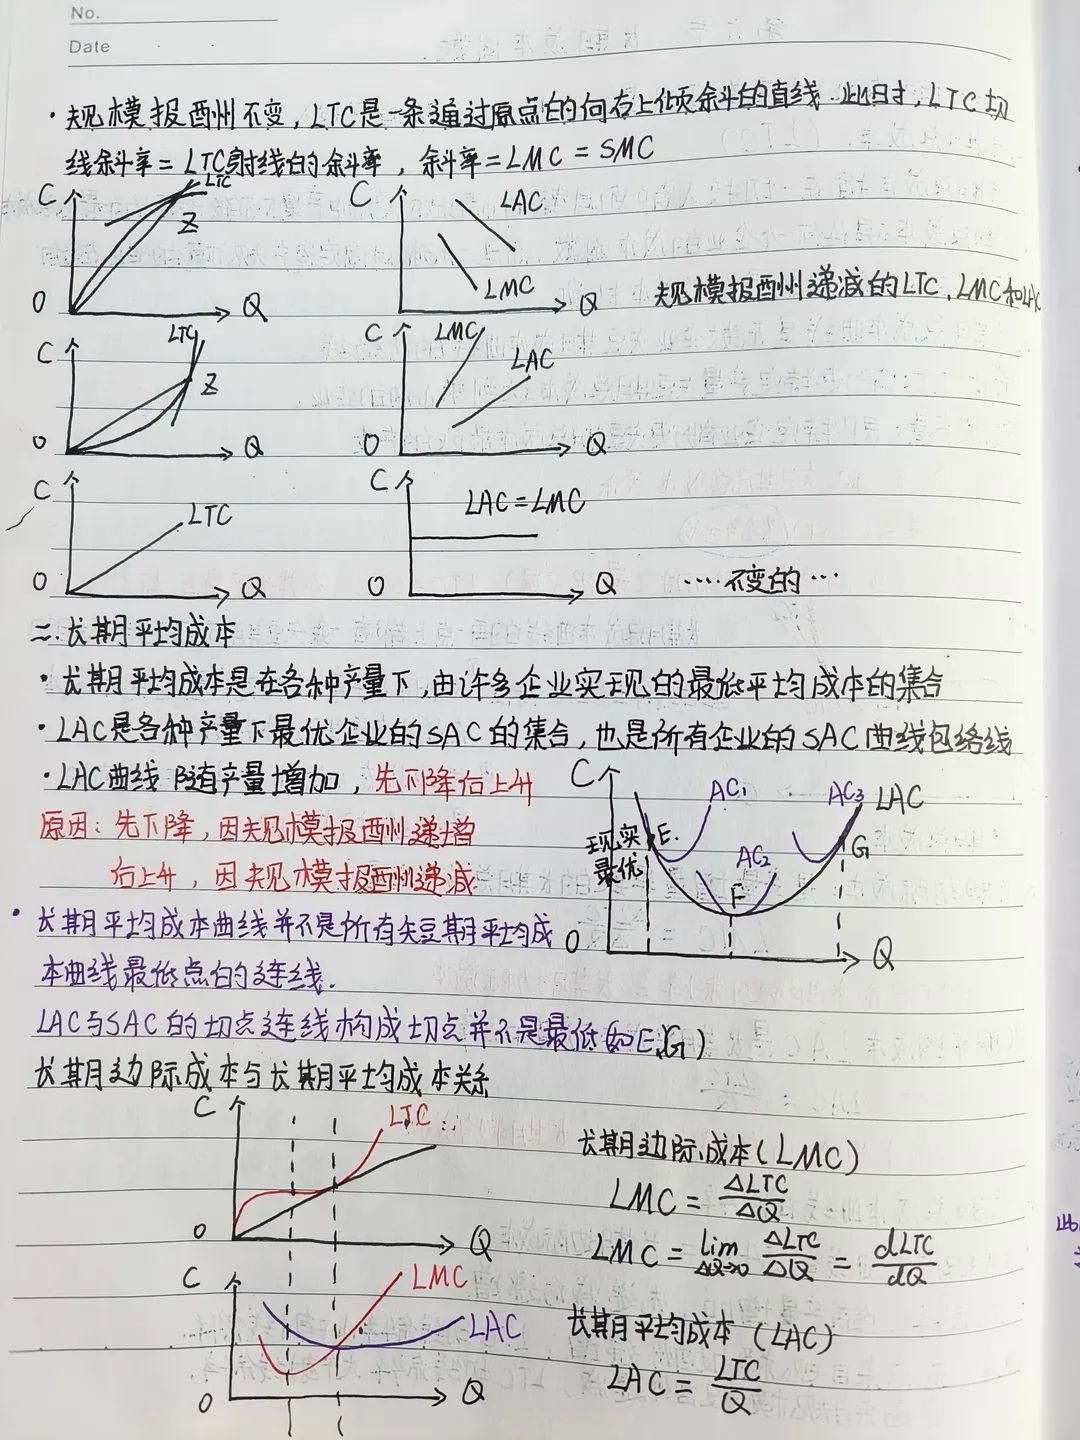 No.
Date
·规模报酬不变，LTC是一条通过原点的向右上倾斜的直线．此时，LTC切
线斜率=LTC射线的斜率，斜率=LMC=SMC
C LTC Z O Q
C LAC LMC O Q
规模报酬递减的LTC、LMC和LAC
C LTC Z O Q
C LMC LAC O Q
C LTC O Q
C LAC=LMC O Q
····不变的···
二.长期平均成本
·长期平均成本是在各种产量下,由许多企业实现的最低平均成本的集合
·LAC是各种产量下最优企业的SAC的集合,也是所有企业的SAC曲线包络线
·LAC曲线随产量增加，先下降后上升
原因:先下降,因规模报酬递增
后上升，因规模报酬递减
C AC1 AC3 LAC
现实 E. AC2 G
最优 F
O Q
·长期平均成本曲线并不是所有短期平均成
本曲线最低点的连线.
LAC与SAC的切点连线构成切点并不是最低(如E、G)
长期边际成本与长期平均成本关系
C LTC
O Q
长期边际成本(LMC)
LMC=ΔLTC/ΔQ
LMC=lim ΔQ→0 ΔLTC/ΔQ = dLTC/dQ
C LMC
LAC
O Q
长期平均成本 (LAC)
LAC=LTC/Q